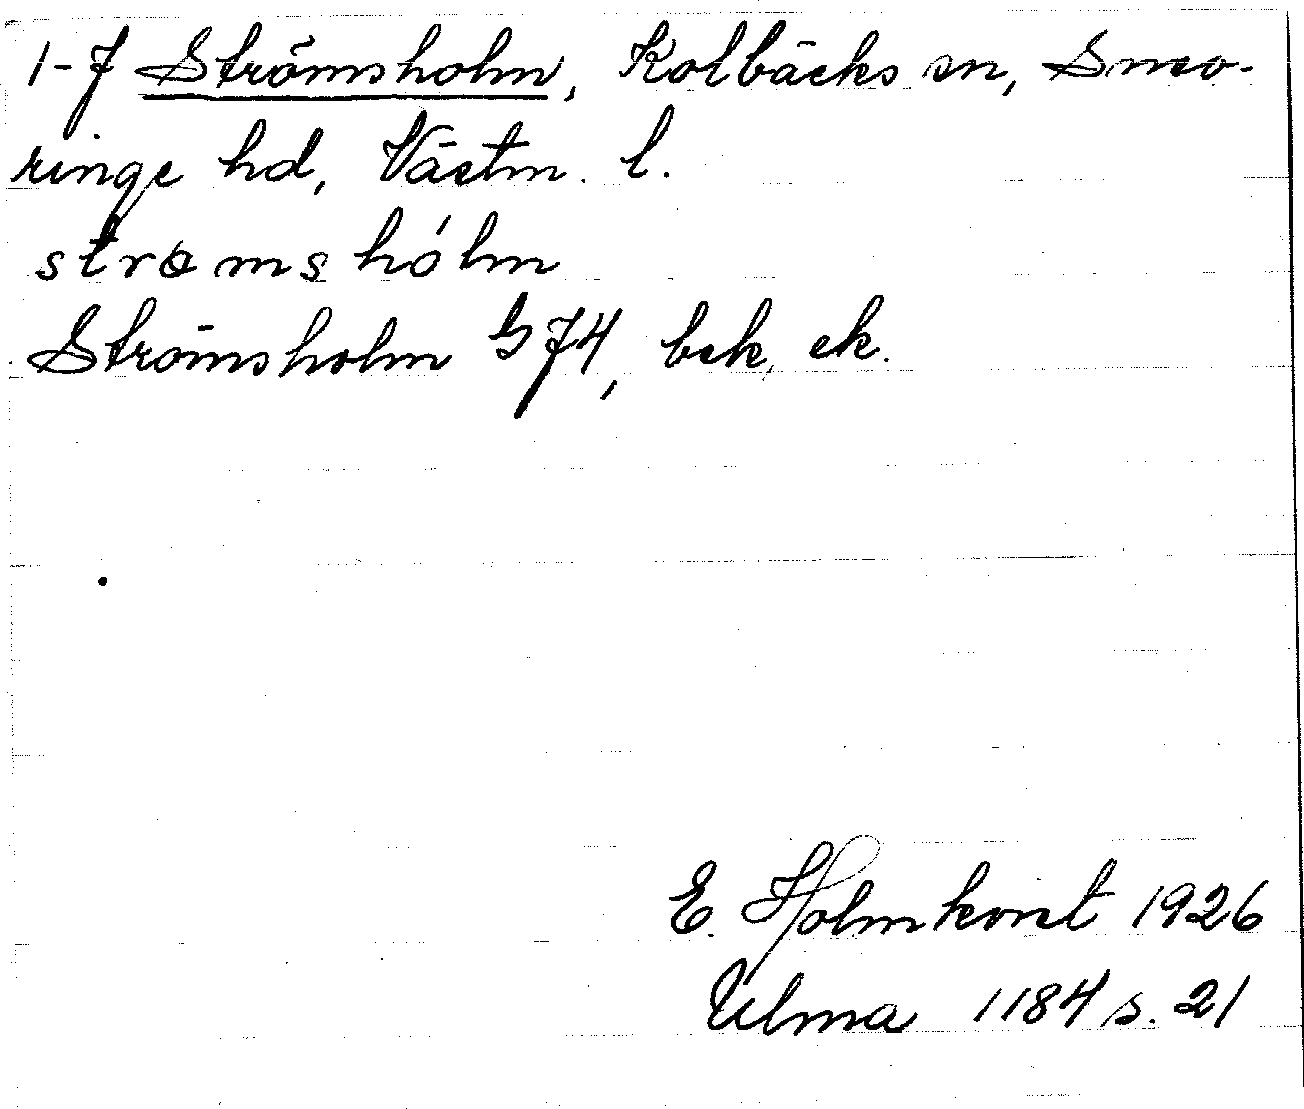 1-7 Strömsholm, Kolbäcks sn, Snevringe hd, Västm. l.
strømshólm
Strömsholm G74, bek. ek.
E. Holmkvist 1926
Ulma 1184 s. 21